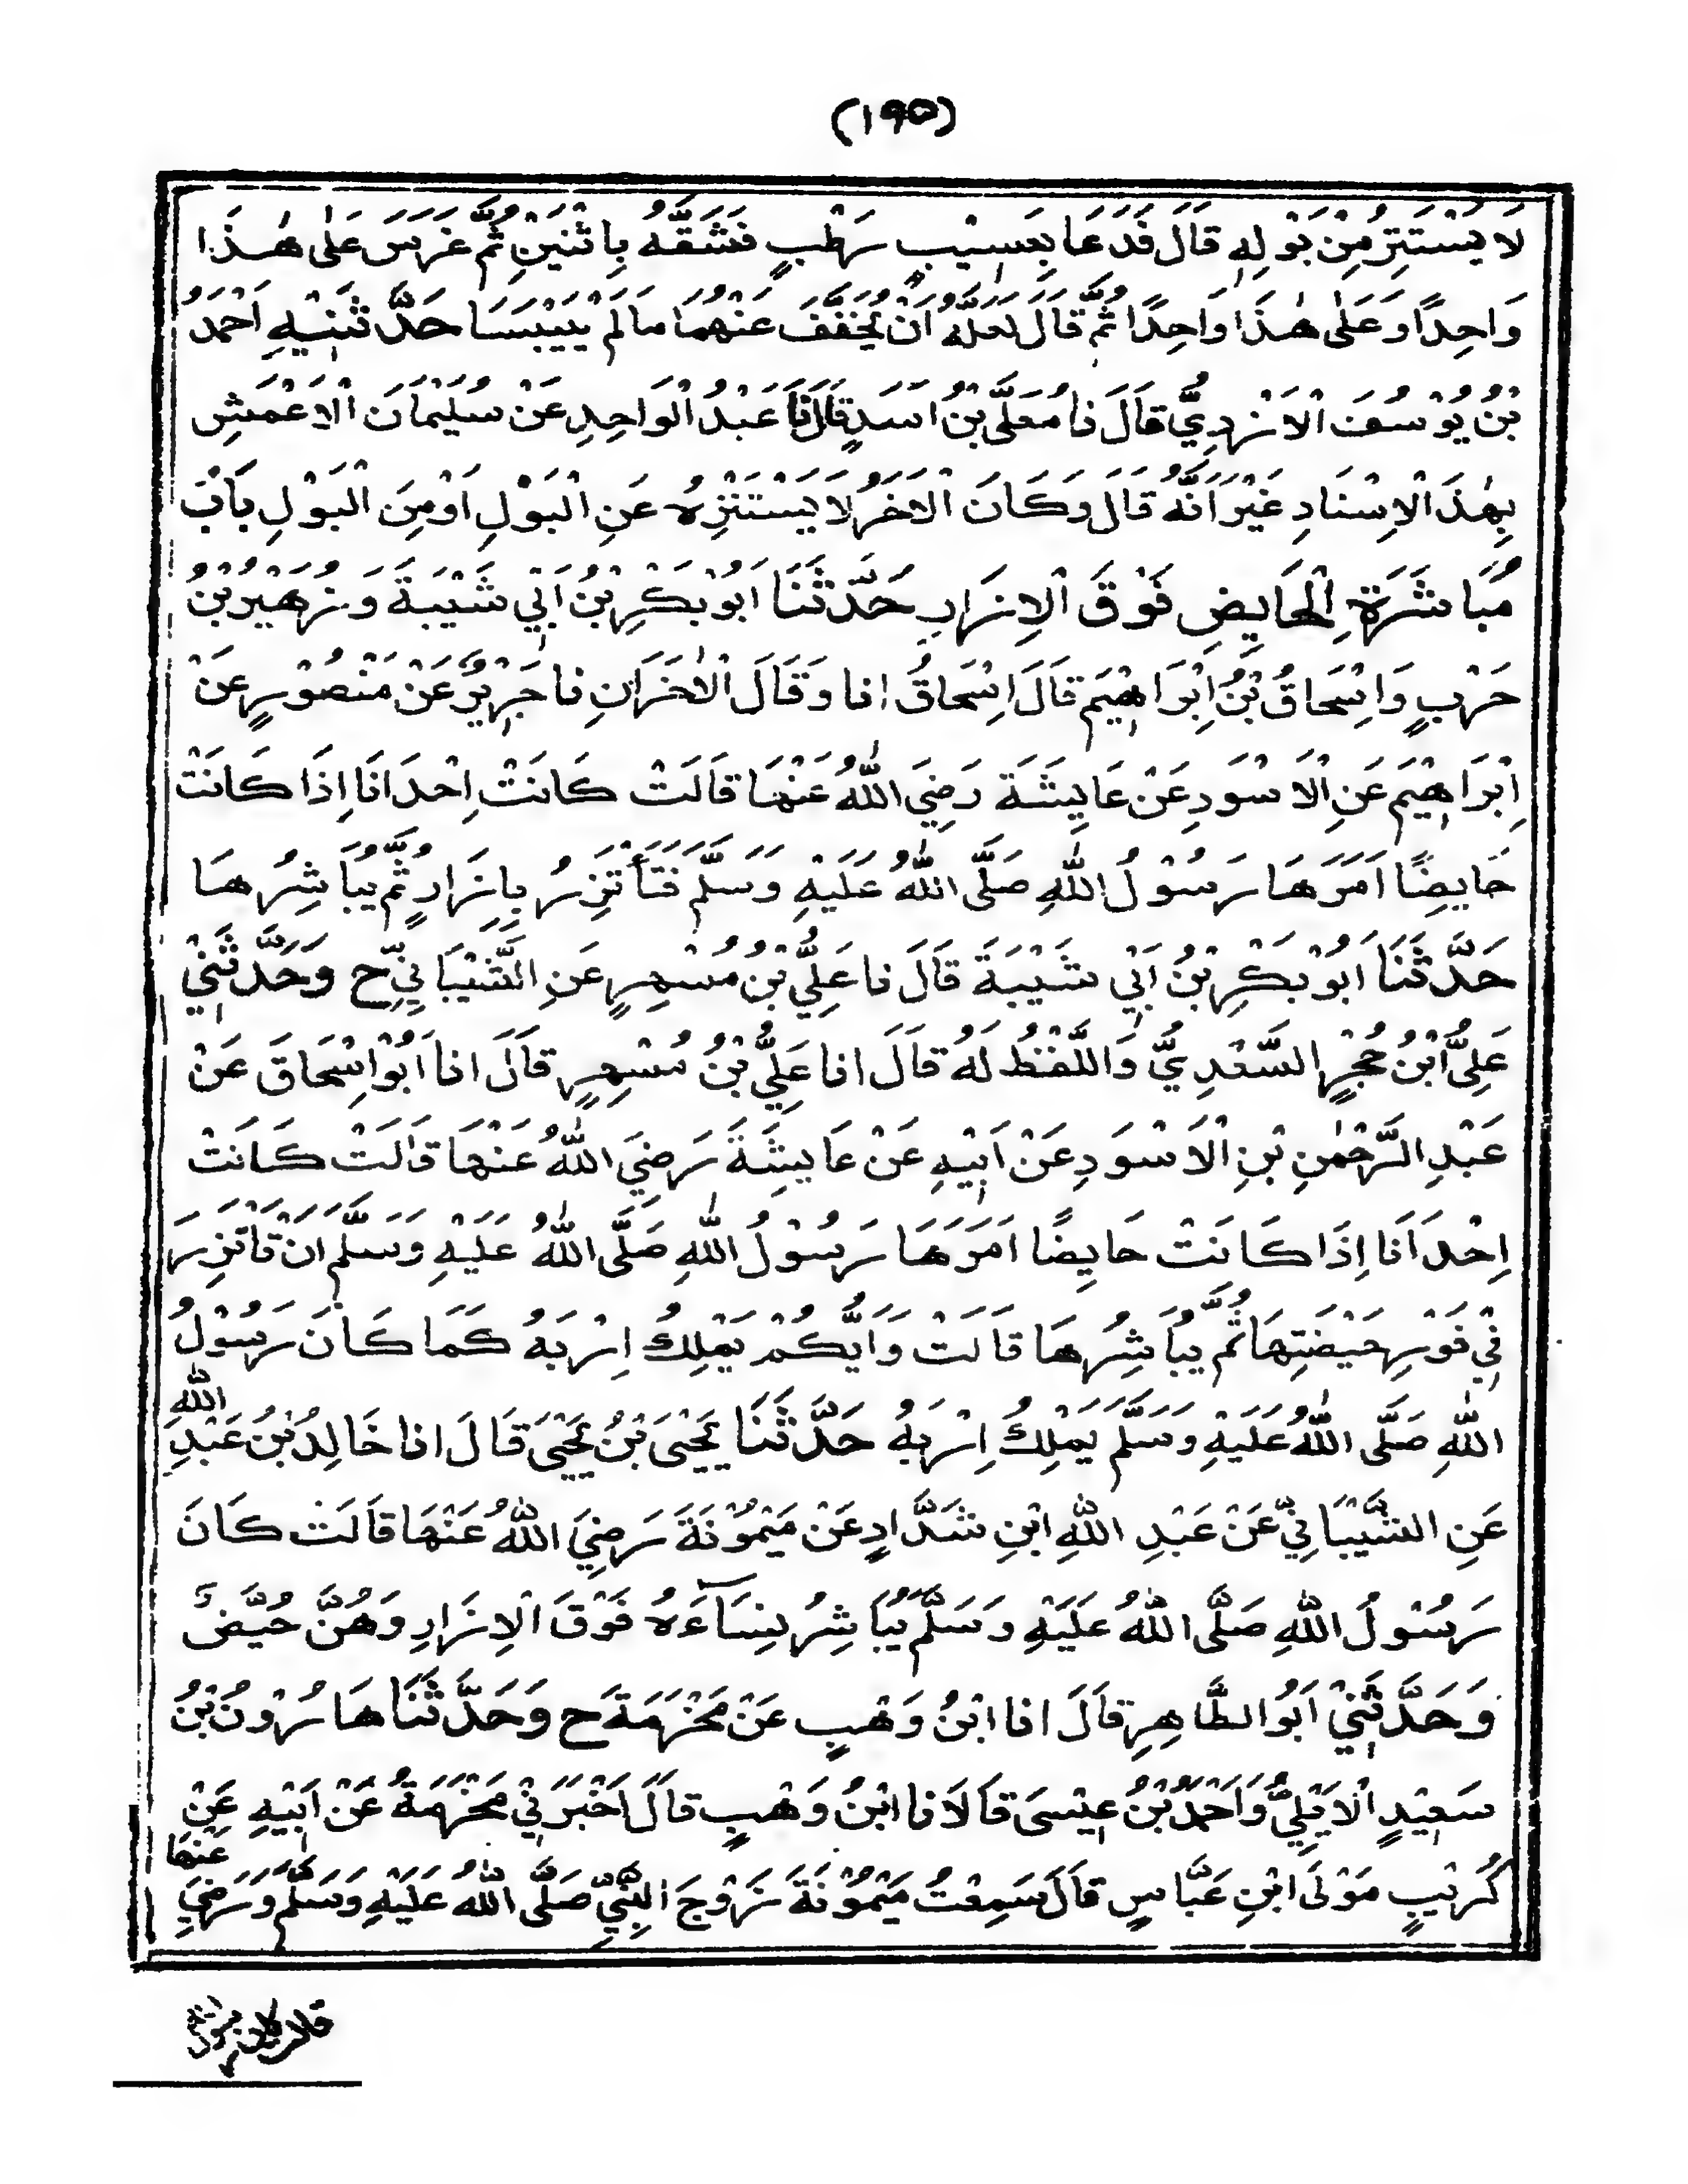 (١٩٥)
لَا يَسْتَتِرُ مِنْ بَوْلِهِ قَالَ فَدَعَا بِعَسِيْبٍ رَطْبٍ فَشَقَّهُ بِاثْنَيْنِ ثُمَّ غَرَسَ عَلٰى هٰذَا
وَاحِدًا وَعَلٰى هٰذَا وَاحِدًا ثُمَّ قَالَ لَعَلَّهُ اَنْ يُخَفَّفَ عَنْهُمَا مَا لَمْ يَيْبَسَا حَدَّثَنِيْهِ اَحْمَدُ
بْنُ يُوْسُفَ الْاَزْدِيُّ قَالَ نا مُعَلَّى بْنُ اَسَدٍ قَالَ نَا عَبْدُ الْوَاحِدِ عَنْ سُلَيْمَانَ الْاَعْمَشِ
بِهٰذَا الْاِسْنَادِ غَيْرَ اَنَّهُ قَالَ وَكَانَ الْاٰخَرُ لَا يَسْتَنْزِهُ عَنِ الْبَوْلِ اَوْ مِنَ الْبَوْلِ بَابُ
مُبَاشَرَةِ الْحَايِضِ فَوْقَ الْاِزَارِ حَدَّثَنَا اَبُوْ بَكْرِ بْنُ اَبِيْ شَيْبَةَ وَزُهَيْرُ بْنُ
حَرْبٍ وَاِسْحَاقُ بْنُ اِبْرَاهِيْمَ قَالَ اِسْحَاقُ انا وَقَالَ الْاٰخَرَانِ نا جَرِيْرٌ عَنْ مَنْصُوْرٍ عَنْ
اِبْرَاهِيْمَ عَنِ الْاَسْوَدِ عَنْ عَايِشَةَ رَضِيَ اللّٰهُ عَنْهَا قَالَتْ كَانَتْ اِحْدَانَا اِذَا كَانَتْ
حَايِضًا اَمَرَهَا رَسُوْلُ اللّٰهِ صَلَّى اللّٰهُ عَلَيْهِ وَسَلَّمَ فَتَأْتَزِرُ بِاِزَارٍ ثُمَّ يُبَاشِرُهَا
حَدَّثَنَا اَبُوْ بَكْرِ بْنُ اَبِيْ شَيْبَةَ قَالَ نا عَلِيُّ بْنُ مُسْهِرٍ عَنِ الشَّيْبَانِيِّ ح وَحَدَّثَنِيْ
عَلِيُّ ابْنُ حُجْرٍ السَّعْدِيُّ وَاللَّفْظُ لَهُ قَالَ انا عَلِيُّ بْنُ مُسْهِرٍ قَالَ انا اَبُوْ اِسْحَاقَ عَنْ
عَبْدِ الرَّحْمٰنِ بْنِ الْاَسْوَدِ عَنْ اَبِيْهِ عَنْ عَايِشَةَ رَضِيَ اللّٰهُ عَنْهَا قَالَتْ كَانَتْ
اِحْدَانَا اِذَا كَانَتْ حَايِضًا اَمَرَهَا رَسُوْلُ اللّٰهِ صَلَّى اللّٰهُ عَلَيْهِ وَسَلَّمَ اَنْ تَاتَزِرَ
فِيْ فَوْرِ حَيْضَتِهَا ثُمَّ يُبَاشِرُهَا قَالَتْ وَاَيُّكُمْ يَمْلِكُ اِرْبَهُ كَمَا كَانَ رَسُوْلُ
اللّٰهِ صَلَّى اللّٰهُ عَلَيْهِ وَسَلَّمَ يَمْلِكُ اِرْبَهُ حَدَّثَنَا يَحْيَى بْنُ يَحْيٰى قَالَ انا خَالِدُ بْنُ عَبْدِ اللّٰهِ
عَنِ الشَّيْبَانِيِّ عَنْ عَبْدِ اللّٰهِ ابْنِ شَدَّادٍ عَنْ مَيْمُوْنَةَ رَضِيَ اللّٰهُ عَنْهَا قَالَتْ كَانَ
رَسُوْلُ اللّٰهِ صَلَّى اللّٰهُ عَلَيْهِ وَسَلَّمَ يُبَاشِرُ نِسَآءَهُ فَوْقَ الْاِزَارِ وَهُنَّ حُيَّضٌ
وَحَدَّثَنِيْ اَبُو الطَّاهِرِ قَالَ انا ابْنُ وَهْبٍ عَنْ مَخْرَمَةَ ح وَحَدَّثَنَا هَارُوْنُ بْنُ
سَعِيْدٍ الْاَيْلِيُّ وَاَحْمَدُ بْنُ عِيْسَى قَالَا نا ابْنُ وَهْبٍ قَالَ اَخْبَرَنِيْ مَخْرَمَةُ عَنْ اَبِيْهِ عَنْ
كُرَيْبٍ مَوْلَى ابْنِ عَبَّاسٍ قَالَ سَمِعْتُ مَيْمُوْنَةَ زَوْجَ النَّبِيِّ صَلَّى اللّٰهُ عَلَيْهِ وَسَلَّمَ وَرَضِيَ عَنْهَا